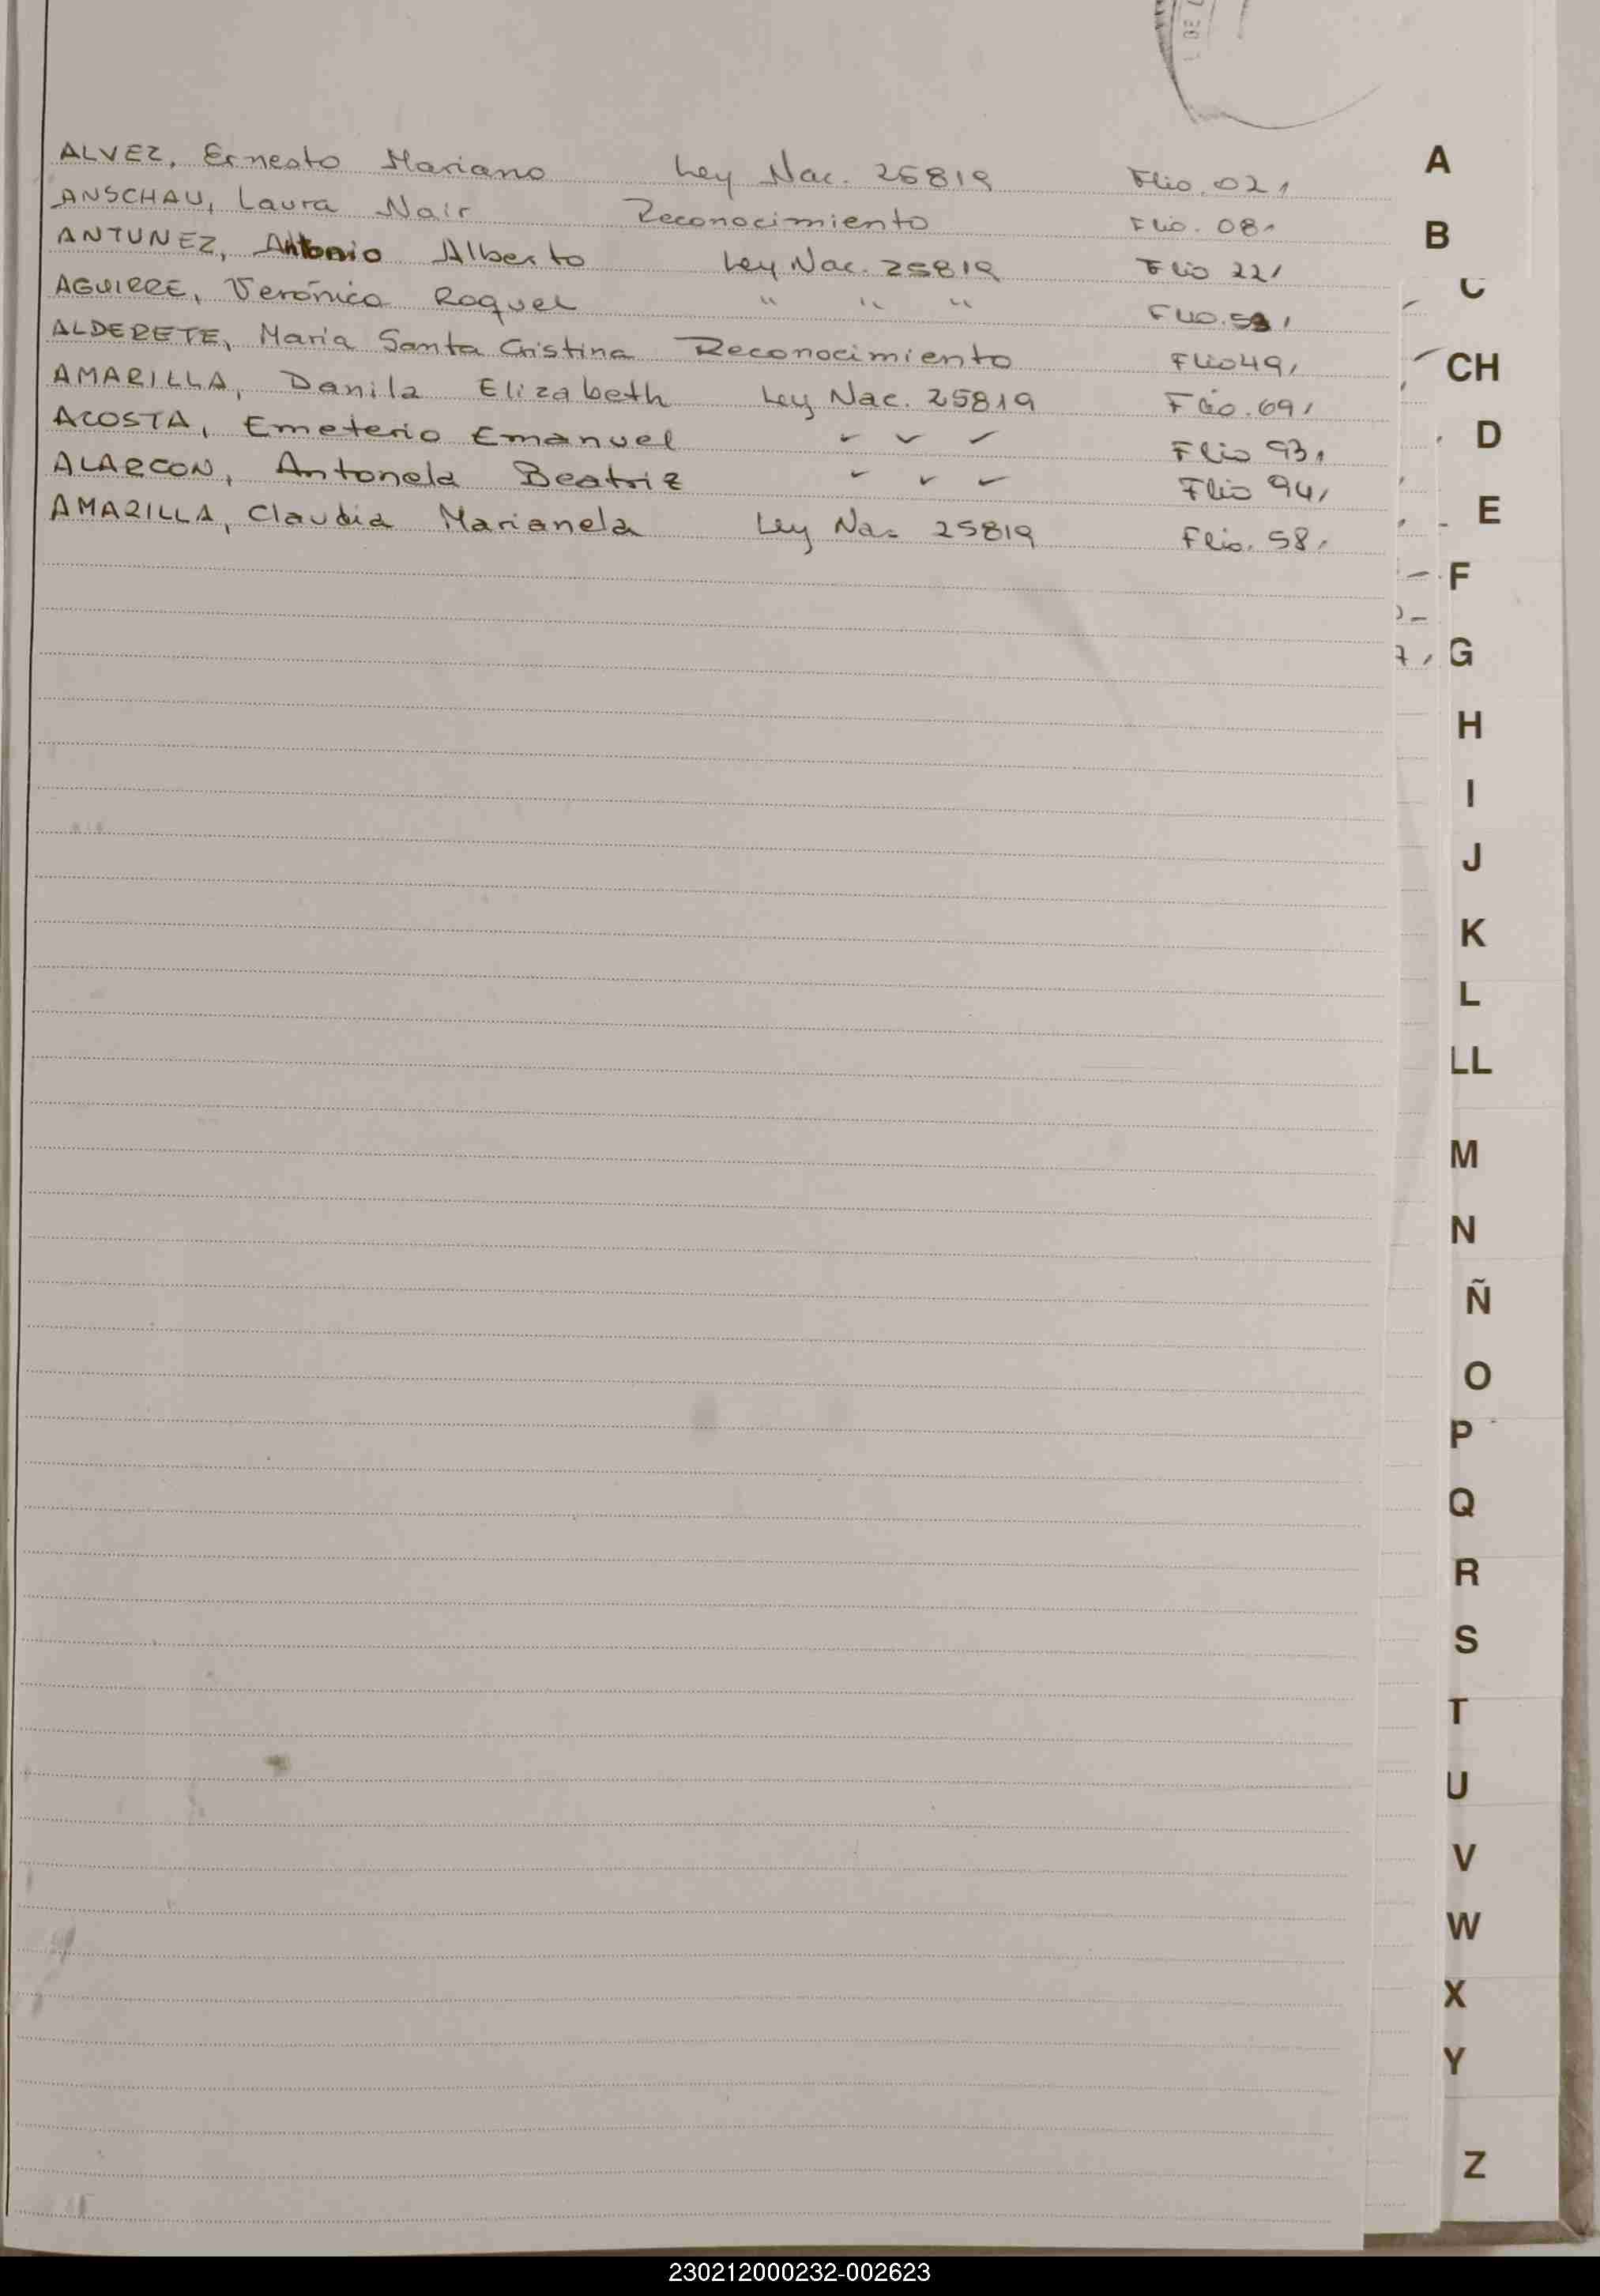 L DE L
ALVEZ, Ernesto Mariano Ley Nac. 25819 Flio. 02,
ANSCHAU, Laura Nair Reconocimiento Flio. 08,
ANTUNEZ, Antonio Alberto Ley Nac. 25819 Flio 22,
AGUIRRE, Verónica Raquel " " " Flio.
ALDERETE, Maria Santa Cristina Reconocimiento Flio 49,
AMARILLA, Danila Elizabeth Ley Nac. 25819 Flio. 69,
ACOSTA, Emeterio Emanuel " " " Flio 93,
ALARCON, Antonela Beatriz " " " Flio 94,
AMARILLA, Claudia Marianela Ley Nac 25819 Flio. 58,
A
B
C
CH
D
E
F
G
H
I
J
K
L
LL
M
N
Ñ
O
P
Q
R
S
T
U
V
W
X
Y
Z
230212000232-002623